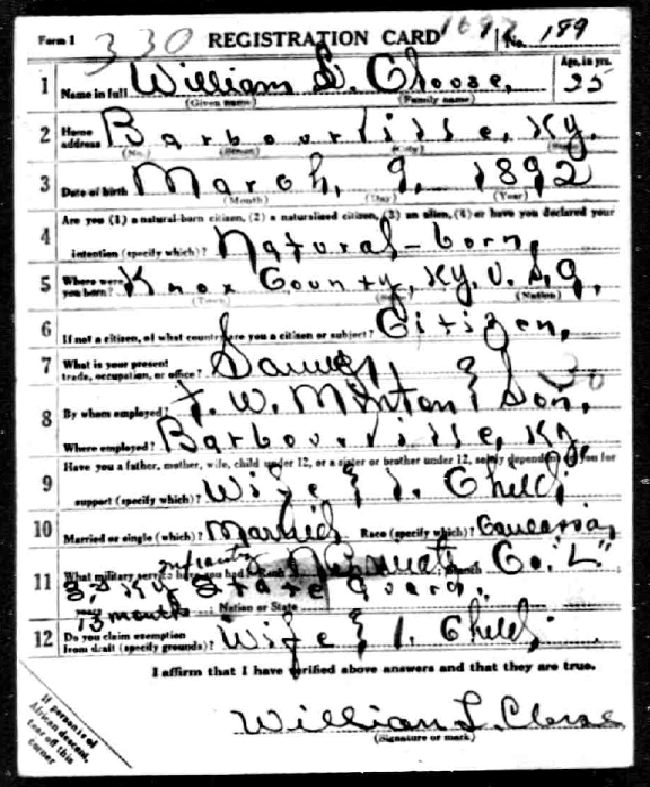 Form 1 330 REGISTRATION CARD No. 189
1 Name in full William L. Cloose, Age, in yrs. 25
(Given name) (Family name)
2 Home address Barbourville, Ky.
(No.) (Street) (City) (State)
3 Date of birth March, 9, 1892
(Month) (Day) (Year)
4 Are you (1) a natural-born citizen, (2) a naturalized citizen, (3) an alien, (4) or have you declared your
intention (specify which)? Natural-born,
5 Where were you born? Knox County, Ky. U.S.A,
(Town) (State) (Nation)
6 If not a citizen, of what country are you a citizen or subject? Citizen,
7 What is your present trade, occupation, or office? Sawyer, 30
8 By whom employed? F. W. Minton & Son,
Where employed? Barbourville, Ky,
9 Have you a father, mother, wife, child under 12, or a sister or brother under 12, solely dependent on you for
support (specify which)? Wife & 1. Child;
10 Married or single (which)? Married Race (specify which)? Caucasian
11 What military service have you had? infantry Co. "L"
3rd Ky State Guard.
years 13 months Nation or State
12 Do you claim exemption from draft (specify grounds)? Wife & 1. Child;
I affirm that I have verified above answers and that they are true.
William L. Cloose
(Signature or mark)
If person is of
African descent,
tear off this
corner